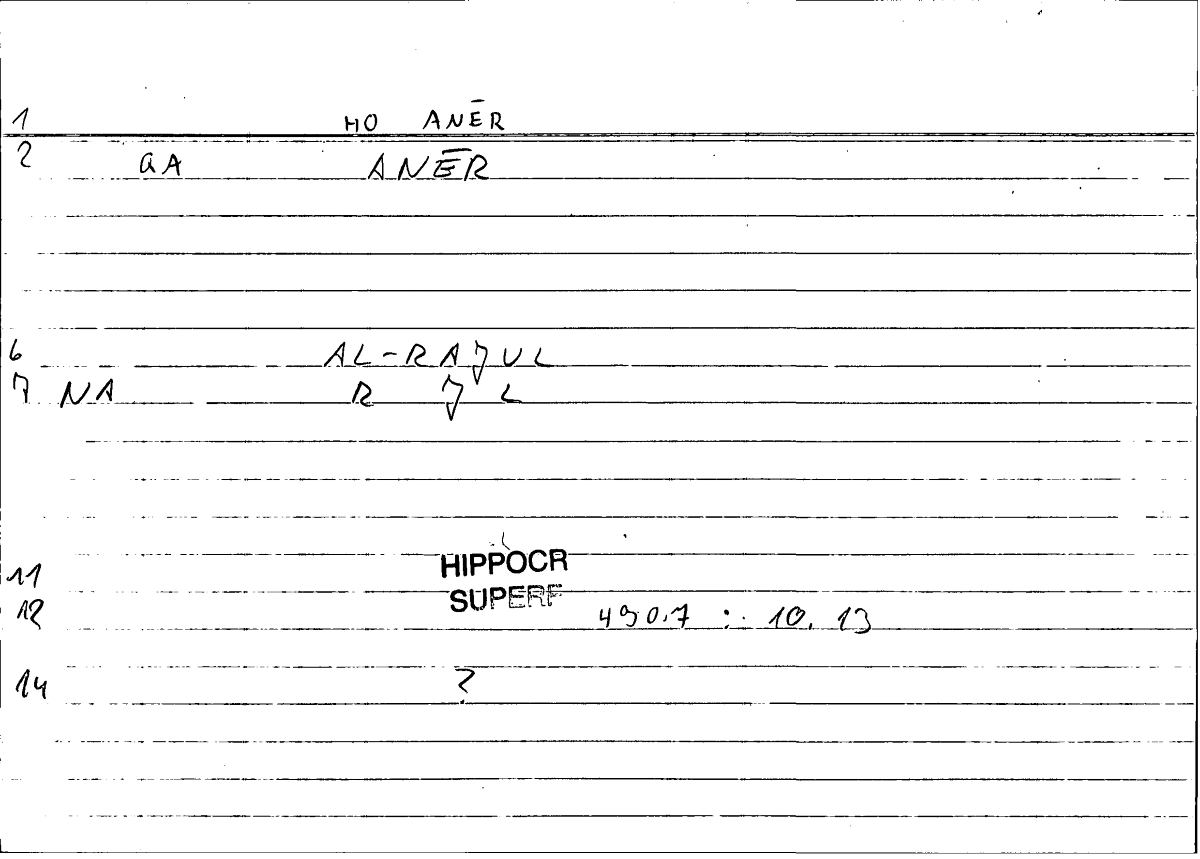 1 HO ANĒR
2 QA ANĒR
6 AL-RAJUL
7 NA R J L
11 HIPPOCR
12 SUPERF 490.7 : 10.13
14 ?